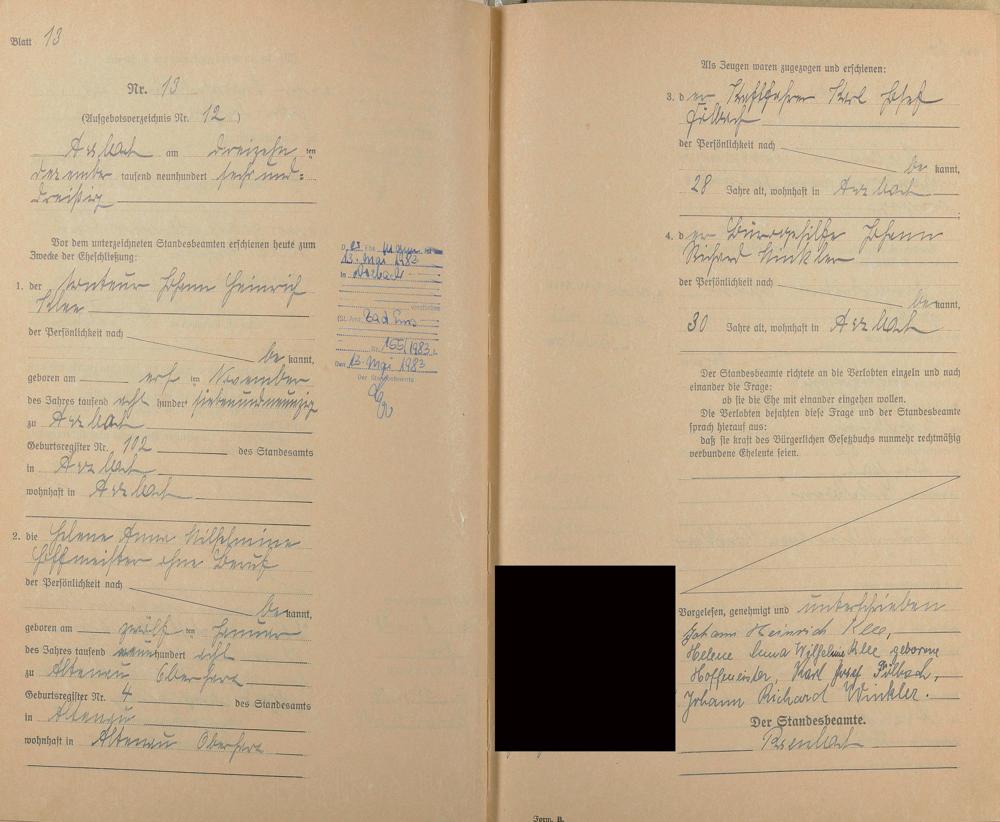 Blatt 13
Nr. 13
(Aufgebotsverzeichnis Nr. 12 )
Arzbach am dreizehn ten
Dezember tausend neunhundert sechsund=
dreißig
Vor dem unterzeichneten Standesbeamten erschienen heute zum
Zwecke der Eheschließung:
1. der Monteur Johann Heinrich
Klee
der Persönlichkeit nach
be kannt,
geboren am elf ten November
des Jahres tausend acht hundert siebenundneunzig
zu Arzbach
Geburtsregister Nr. 102 des Standesamts
in Arzbach
wohnhaft in Arzbach
2. die Helene Anna Wilhelmine
Hoffmeister ohne Beruf
der Persönlichkeit nach
be kannt,
geboren am zwölf ten Januar
des Jahres tausend neunhundert acht
zu Altenau Oberharz
Geburtsregister Nr. 4 des Standesamts
in Altenau
wohnhaft in Altenau Oberharz
Der Ehe Mann ist am
13. Mai 1983
in Arzbach
verstorben
(St.Amt Bad Ems
Nr. 155/1983
Den 13. Mai 1983
Der Standesbeamte
Als Zeugen waren zugezogen und erschienen:
3. der Kraftfahrer Karl Josef
Fülbach
der Persönlichkeit nach
be kannt,
28 Jahre alt, wohnhaft in Arzbach
4. der Bürogehilfe Johann
Richard Winkler
der Persönlichkeit nach
be kannt,
30 Jahre alt, wohnhaft in Arzbach
Der Standesbeamte richtete an die Verlobten einzeln und nach
einander die Frage:
ob sie die Ehe mit einander eingehen wollen.
Die Verlobten bejahten diese Frage und der Standesbeamte
sprach hierauf aus:
daß sie kraft des Bürgerlichen Gesetzbuchs nunmehr rechtmäßig
verbundene Eheleute seien.
Vorgelesen, genehmigt und unterschrieben
Johann Heinrich Klee,
Helene Anna Wilhelmine Klee geborene
Hoffmeister, Karl Josef Fülbach,
Johann Richard Winkler.
Der Standesbeamte.
Form. B.